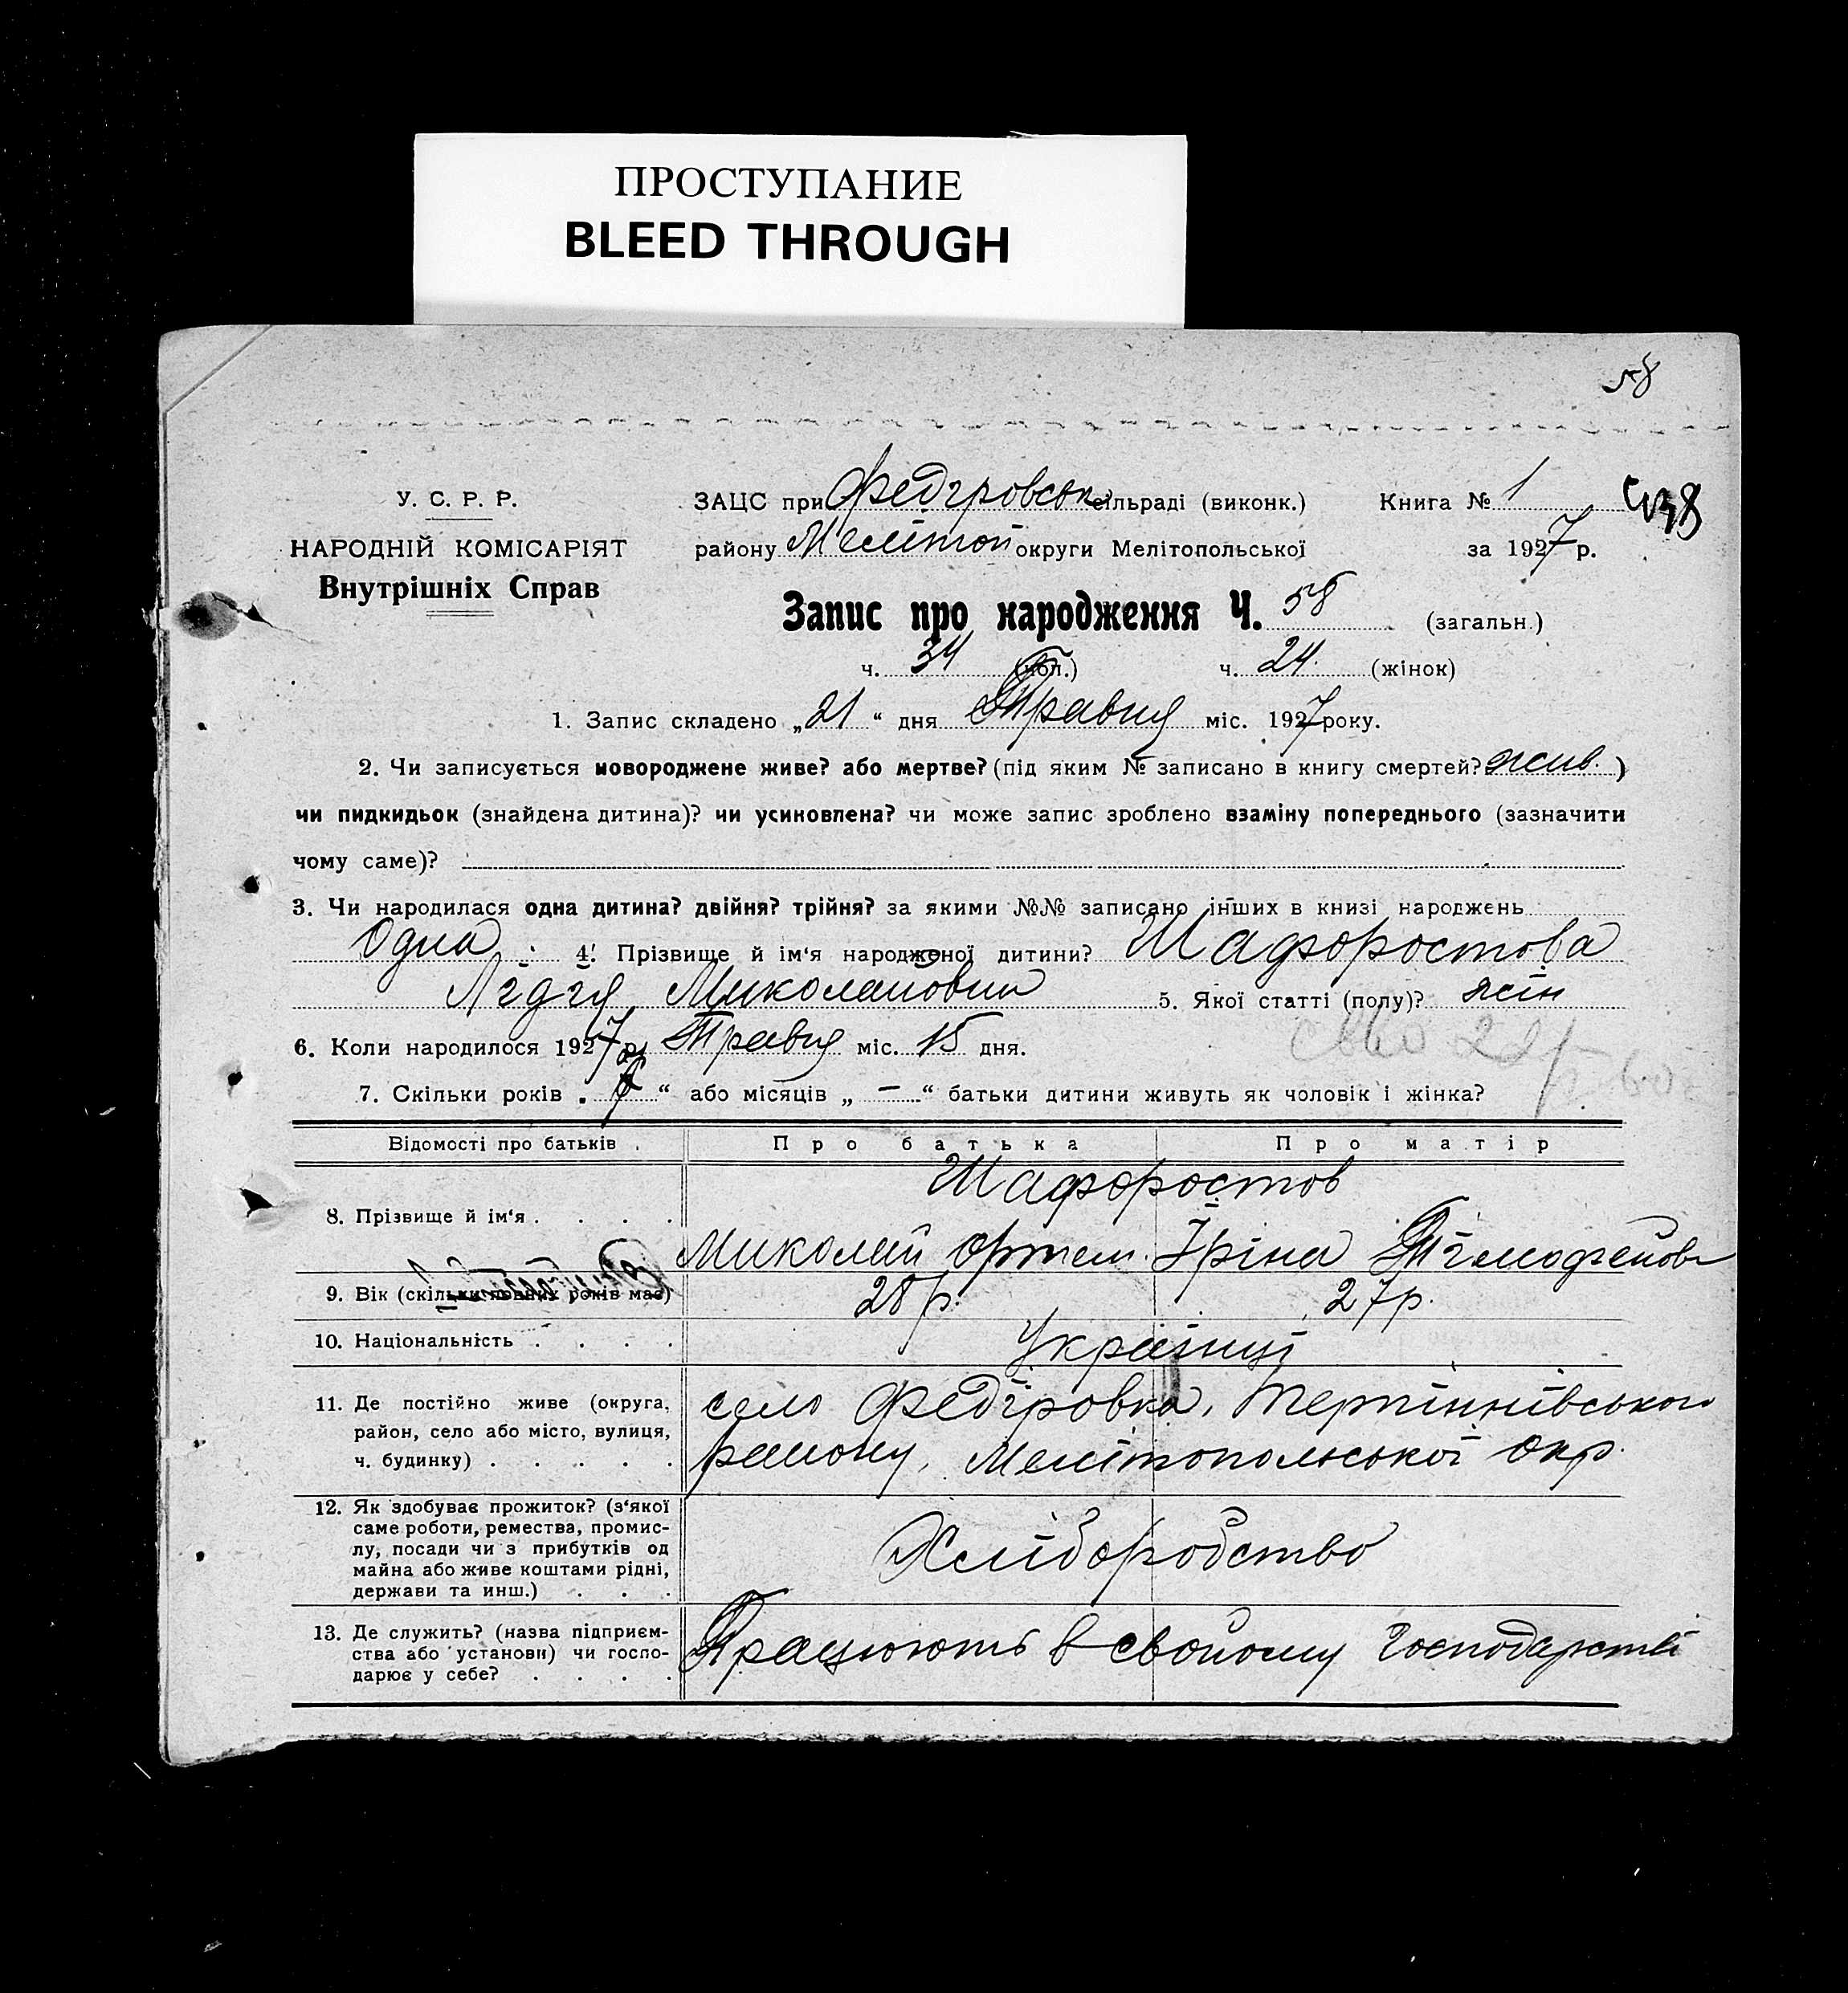 ПРОСТУПАНИЕ
BLEED THROUGH
58
У. С. Р. Р.
НАРОДНІЙ КОМІСАРІЯТ
Внутрішніх Справ
ЗАЦС при Федіровськ сільраді (виконк.) Книга № 1
району Мелітоп округи Мелітопольської за 1927 р.
Запис про народження Ч. 58 (загальн.)
ч. 34 (чол.) ч. 24 (жінок)
1. Запис складено „21“ дня Травня міс. 1927 року.
2. Чи записується новороджене живе? або мертве? (під яким № записано в книгу смертей? жив. )
чи пидкидьок (знайдена дитина)? чи усиновлена? чи може запис зроблено взаміну попереднього (зазначити
чому саме)?
3. Чи народилася одна дитина? двійня? трійня? за якими №№ записано інших в книзі народжень
Одна 4. Прізвище й ім‘я народженої дитини? Шафоростова
Лідія Миколаївни 5. Якої статті (полу)? жін
6. Коли народилося 1927 р. Травня міс. 15 дня.
7. Скільки років „ “ або місяців „ — “ батьки дитини живуть як чоловік і жінка?
Відомості про батьків Про батька Про матір
Шафоростов
8. Прізвище й ім‘я . . . . Миколай Ортем. Іріна Тімофейов
9. Вік (скільки повних років має) 28 р. 27 р.
10. Національність . . . . Українці
11. Де постійно живе (округа,
район, село або місто, вулиця,
ч. будинку) . . . . .
село Федіровка, Терпіннівського
району, Мелітопольської окр.
12. Як здобуває прожиток? (з‘якої
саме роботи, ремества, промис-
лу, посади чи з прибутків од
майна або живе коштами рідні,
держави та инш.) . . .
Хліборобство
13. Де служить? (назва підприєм-
ства або установи) чи госпо-
дарює у себе? . . . .
Працюють в свойому господарстві